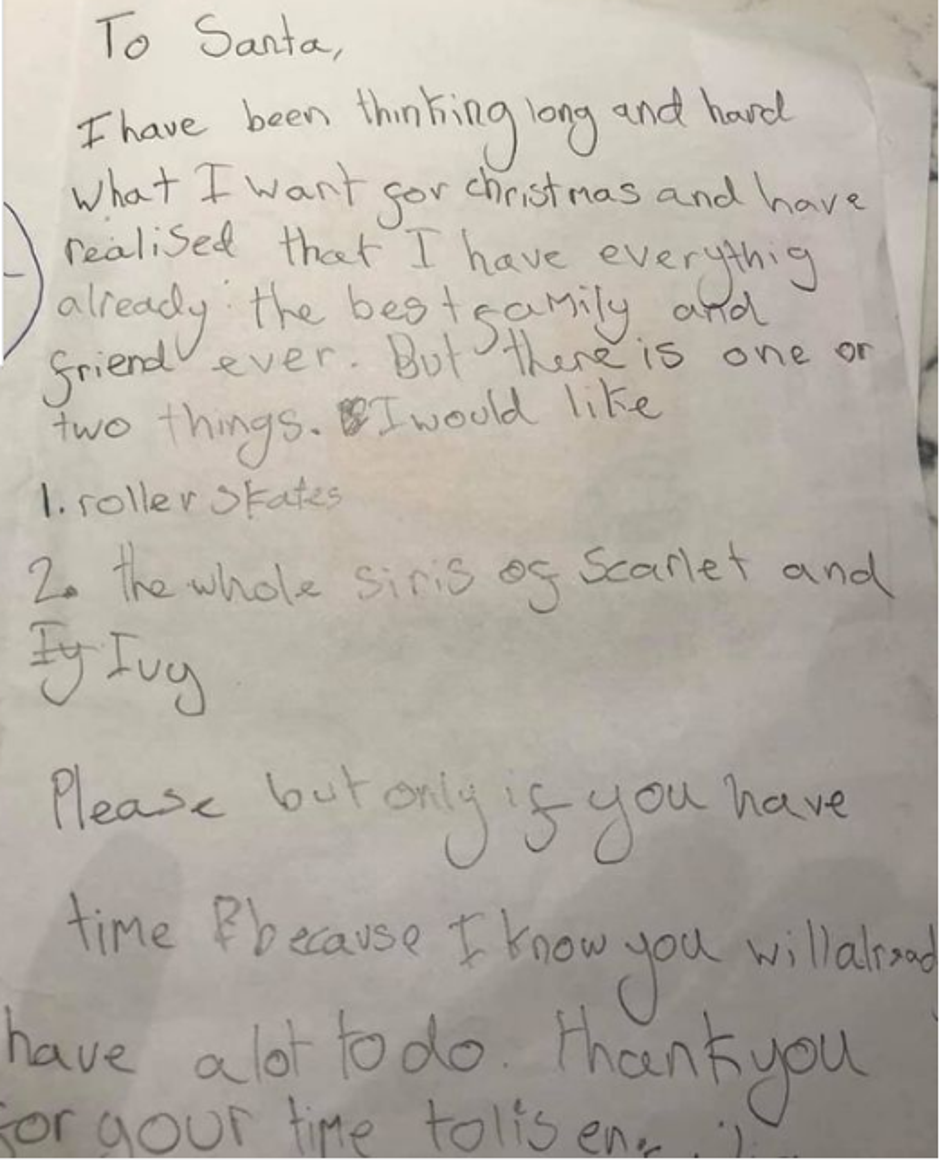 To Santa,
I have been thinking long and hard
what I want for christmas and have
realised that I have everythig
already: the best family and
friend ever. But there is one or
two things. I would like
1. roller skates
2. the whole siris of Scarlet and
Iy Ivy
Please but only if you have
time because I know you will alread
have a lot to do. thank you
for your time to lisen. :)